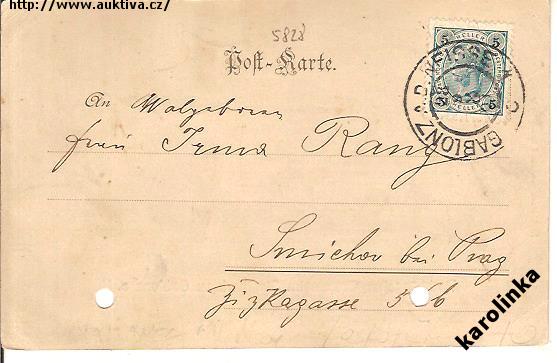 http://www.auktiva.cz/
5828
Post-Karte.
5 HELLER 5
GABLONZ A.D. NEISSE
An Wolgeboren
Frau Irma Rang
Smichov bei Prag
Žižkagasse 5/b
karolinka